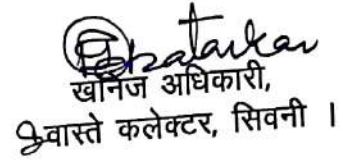 खनिज अधिकारी,
वास्ते कलेक्टर, सिवनी ।